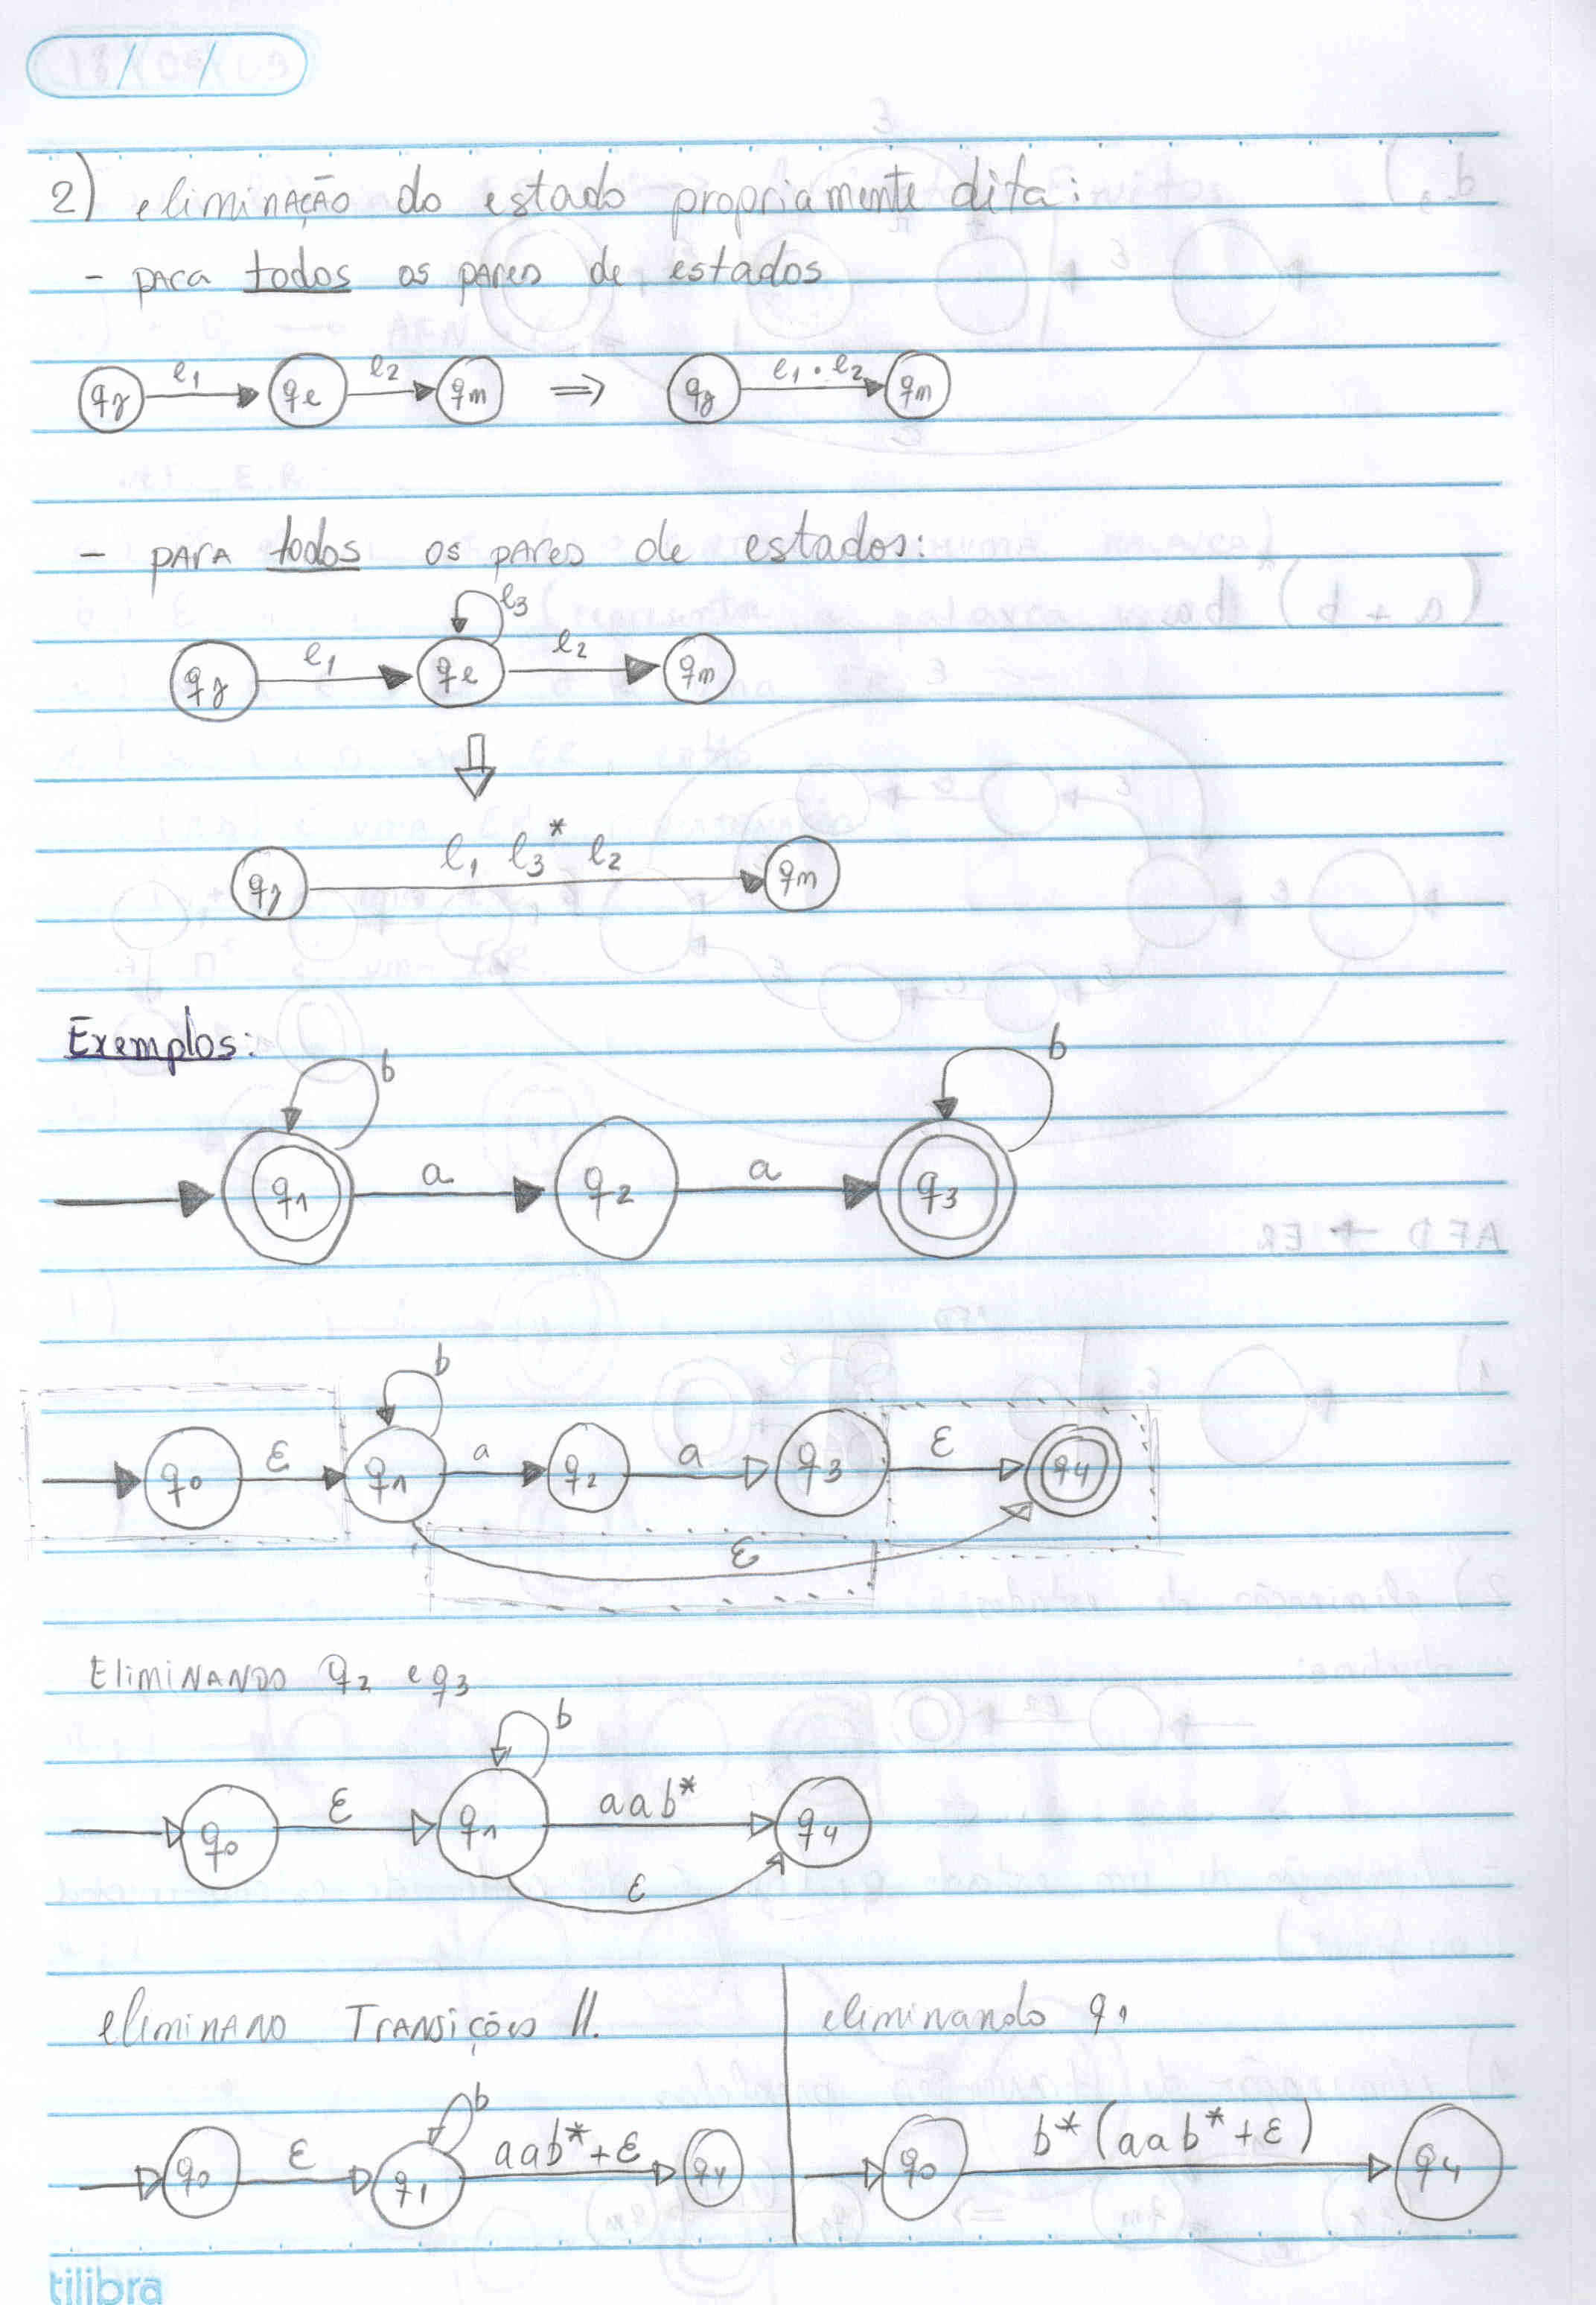 2) eliminação do estado propriamente dita:
- para todos os pares de estados
qj e1 qe e2 qm ⇒ qj e1 · e2 qm
- para todos os pares de estados:
e3
qj e1 qe e2 qm
e1 e3* e2
qj qm
Exemplos:
b b
q1 a q2 a q3
b
q0 ε q1 a q2 a q3 ε q4
ε
Eliminando q2 e q3
b
q0 ε q1 aab* q4
ε
eliminano Transições //. eliminando q1
b
q0 ε q1 aab*+ε q4 q0 b*(aab*+ε) q4
tilibra